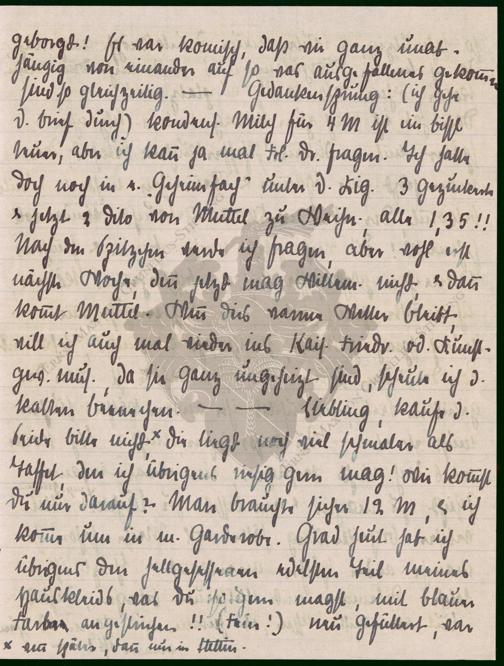 geborgt! Es war komisch, daß wir ganz unab-
hängig von einander auf so was ausgefallenes gekommen
sind so gleichzeitig. — Gedankensprung: (ich gehe
d. brief durch) kondens. Milch für 4 M ist ein bissl
teuer, aber ich kann ja mal Frl. Dr. fragen. Ich hatte
doch noch in m. "Geheimfach" unter d. 3 gezuckerte
& jetzt 2 dito von Muttel zu Weihn. alle 1,35!!
Nach den Spitzchen werde ich fragen, aber wohl erst
nächste Woche, denn jetzt mag Willem. nicht & dann
kommt Muttel. Wenn dies warme Wetter bleibt,
will ich auch mal wieder ins Kais. Friedr. od. Kunst-
gew. mus., da sie ganz ungeheizt sind, scheute ich d.
kalten — — Liebling, kaufe d.
Seide bitte nicht,ˣ die liegt noch viel schmaler als
Taffet, den ich übrigens riesig gern mag! Wie kommst
Du nur darauf? Man brauchte sicher 12 M, & ich
komme um in m. Garderobe. Grad heut hab ich
übrigens den hellgesessenen edelsten Teil meines
Hauskleids, was du magst, mit blauer
Farbe angestrichen!! (Fein!) neu gefüttert, war
x evtl später, dann nur in Stettin.